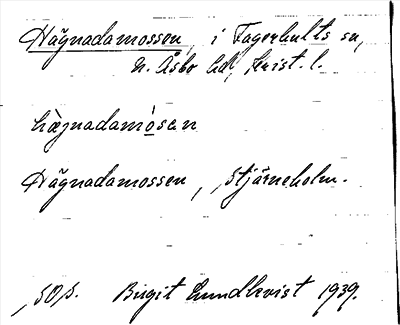 Hägnadamossen, i Fagerhults sn,
N. Åsbo hd, Krist. l.
hägnadamòsan
Hägnadamossen, Stjärneholm.
SOS. Birgit Lundkvist 1939.